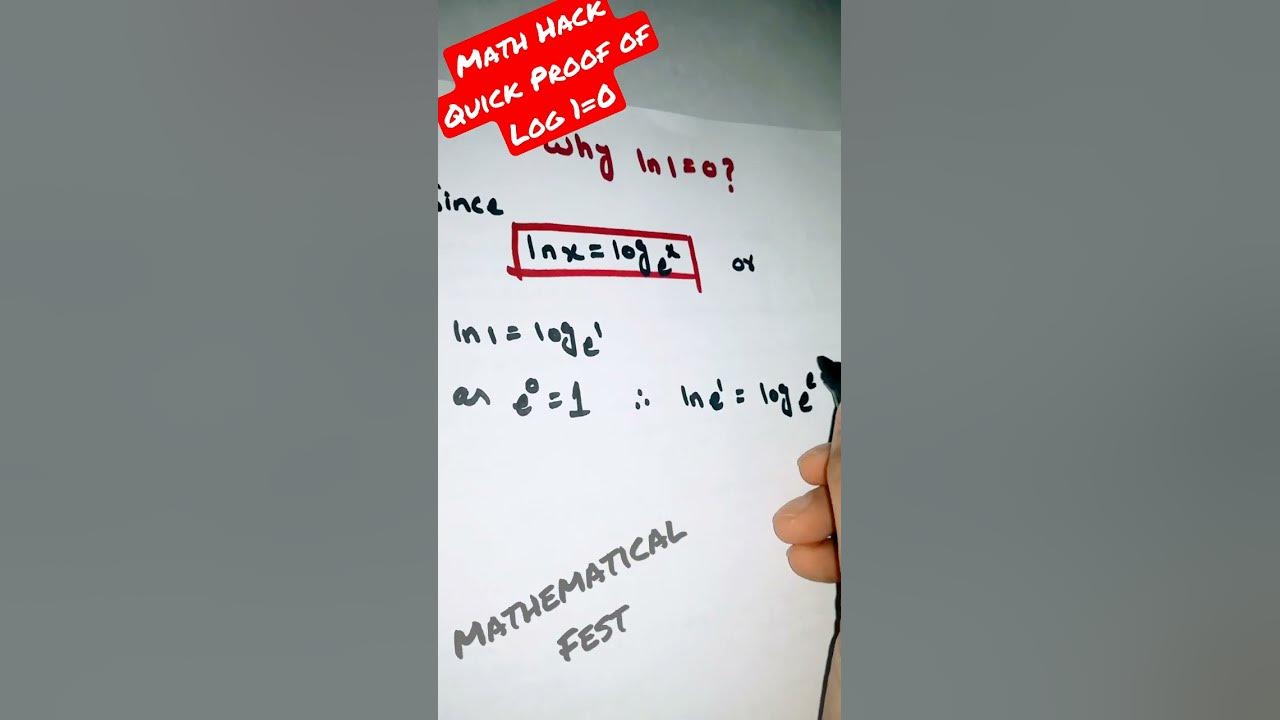 MATH HACK
QUICK PROOF OF
LOG 1=0
Why ln 1=0?
Since
ln x = log_e x or
ln 1 = log_e 1
as e⁰ = 1 ∴ ln e¹ = log_e e
MATHEMATICAL
FEST